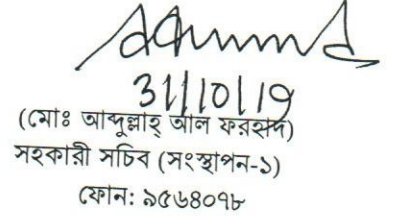 31/10/19
(মোঃ আব্দুল্লাহ্ আল ফরহাদ)
সহকারী সচিব (সংস্থাপন-১)
ফোন: ৯৫৬৪০৭৮